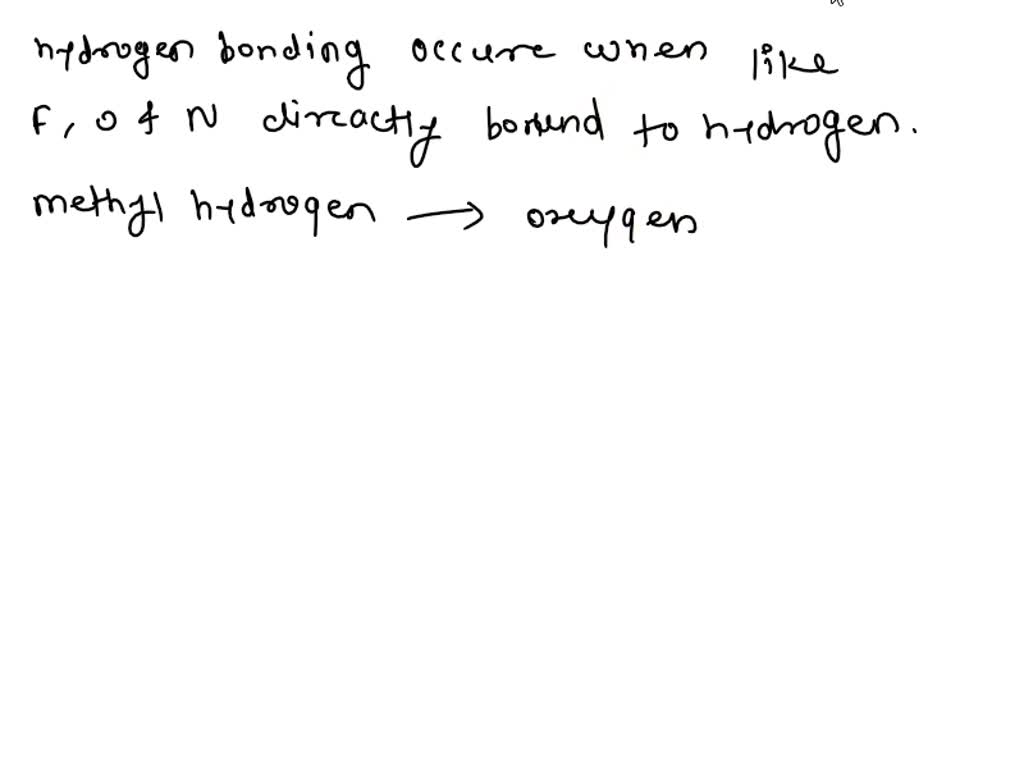 hydrogen bonding occure when like
F, O & N dircactly bound to hydrogen.
methyl hydrogen → oxygen